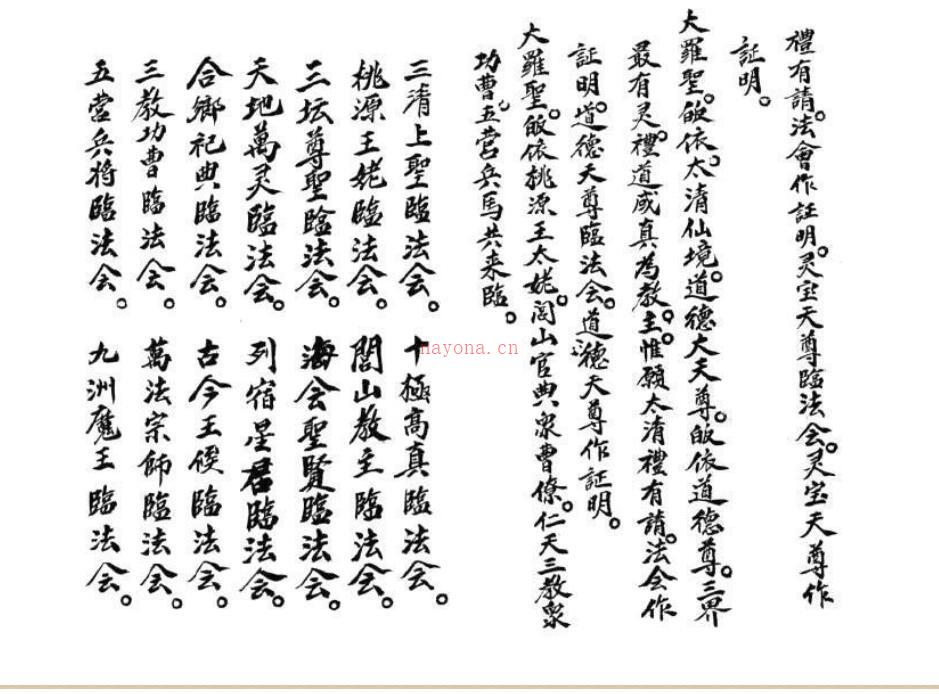 禮有請。法會作証明。灵宝天尊臨法会。灵宝天尊作
証明。
大羅聖。皈依太清仙境。道德大天尊。皈依道德尊。三界
最有灵。禮道咸真為教主。惟願太清禮有請。法会作
証明。道德天尊臨法会。道德天尊作証明。
大羅聖。皈依桃源王太姥。闾山官典眾曹僚。仁天三教眾
功曹。五营兵馬共来臨。
三清上聖臨法会。十極高真臨法会。
桃源王姥臨法会。闾山教主臨法会。
三坛尊聖臨法会。海会聖賢臨法会。
天地萬灵臨法会。列宿星君臨法会。
合鄉祀典臨法会。古今王侯臨法会。
三教功曹臨法会。萬法宗師臨法会。
五营兵將臨法会。九洲魔王臨法会。
nayona.cn